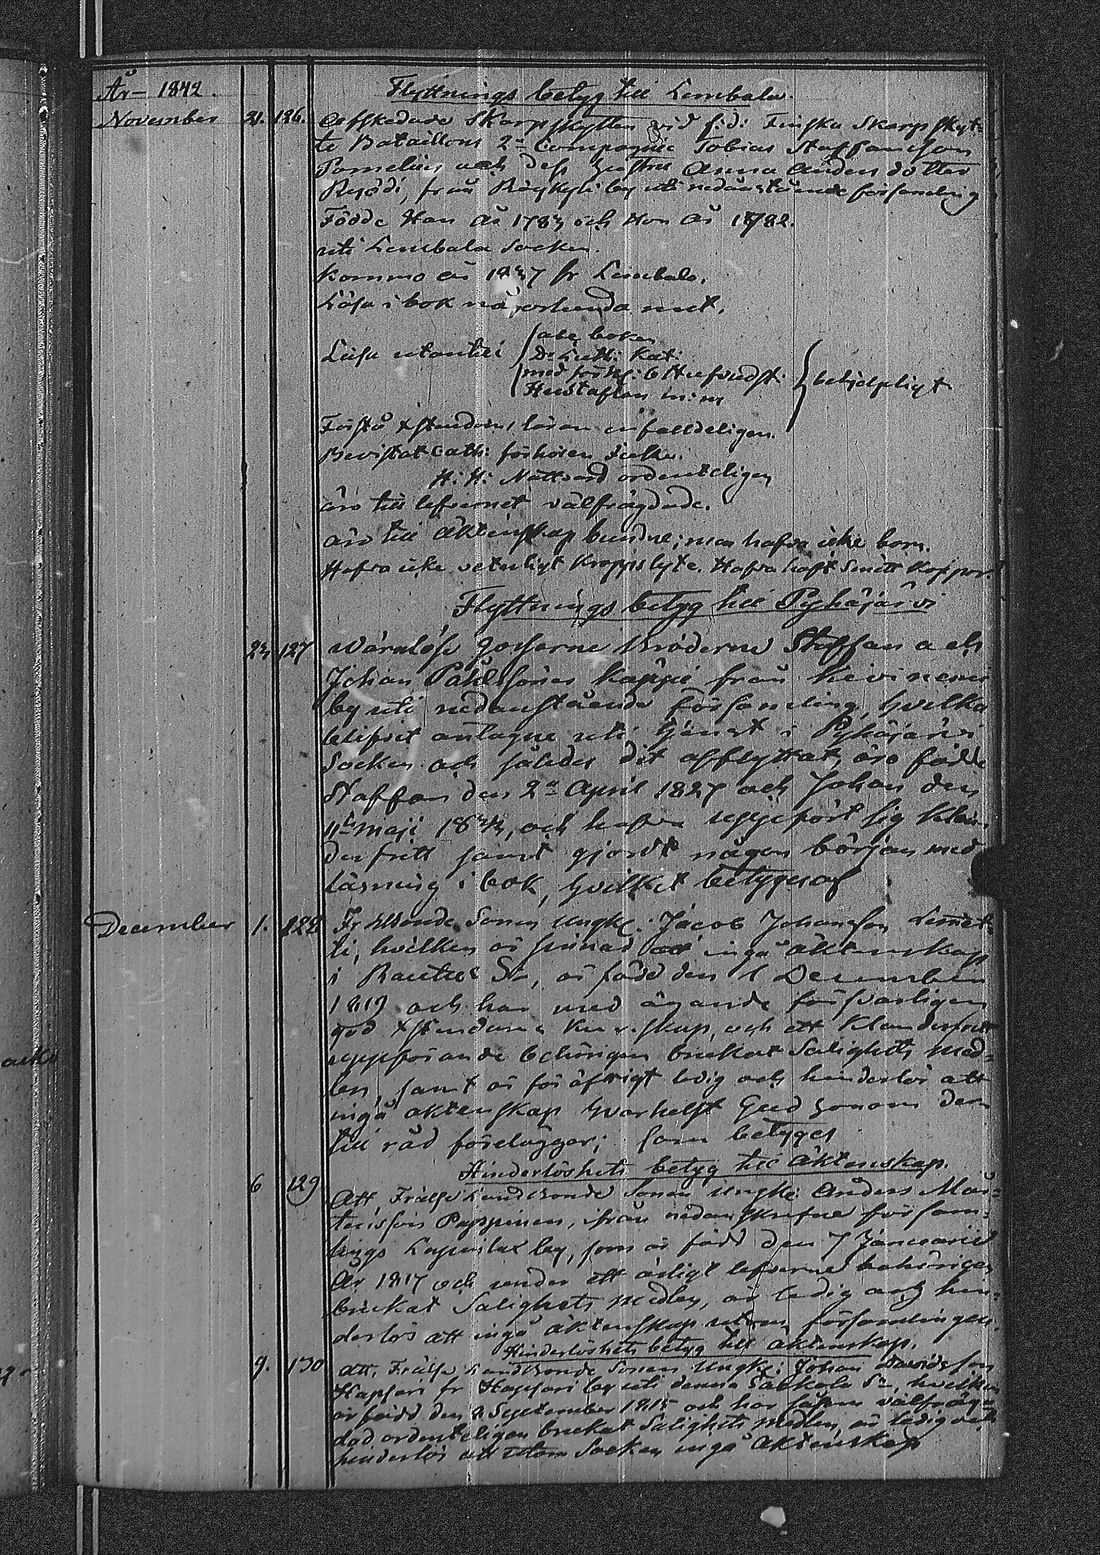 År 1842.
Flyttnings betyg till Lembala.
November 21. 126. Afskedade Skarpskytten vid f: d: Finska Skarpskyt-
te Bataillons 2 Compagnie Tobias Staffansson
Pomelius och dess hustru Anna Anders dotter
från by uti nedanstående församling
Födde Han år 1783 och Hon år 1782.
uti Lembala Socken.
Kommo år 1837 fr Lembala.
Läsa i bok
Läsa utantill
abc boken
D: Luth: Kat:
med förkl:
Hustaflan
behjelpligt
Förstå Xstendoms läran enfalldeligen.
Bevistat Cath: förhören
H: H: Nattvard ordenteligen
äro till lefvernet välfrägdade.
äro till äktenskap bundne; men hafva icke barn.
Hafva icke veterligt kroppslyte. Hafva haft Smitt Koppor.
Flyttnings betyg till Pyhäjärvi
23. 127 Wärnlöse Gossarne Bröderne Staffan och
Johan Påhlssöner Käppi från Kevinemi
by uti nedanstående församling, hvilka
blifvit antagne uti tjenst i Pyhäjärvi
Socken och således dit afflyttat, äro födde
Staffan den 2 April 1827 och Johan den
maji och hafva uppfört sig klan-
derfritt samt gjordt någon början med
läsning i bok, hvilket betygas af
December 1. 128 Bonde Sonen Ungk: Jacob Johansson
ti, hvilken är sinnad ingå äktenskap
i Rautus Sn, är född den December
1819 och har med ägande försvarligen
god Xstendoms kunskap, och ett klanderfritt
uppförande behörigen brukat Salighets med-
len, samt är för öfrigt ledig och hinderlös att
ingå äktenskap hvarhelst Gud honom der-
till råd förelägger; som betyges
Hinderlöshets betyg till äktenskap.
6 129 Att, Frälse Landbonde Sonen Ungk: Anders Mår-
tensson Pappinen, ifrån nedanskrefne försam-
lings by, som är född den 7 Januarii
År 1817 och under ett ärligt lefverne behörigen
brukat Salighets medlen, är ledig och hin-
derlös att ingå äktenskap utom församlingen.
Hinderlöshets betyg till äktenskap.
9. 130 att, Frälse Landbonde Sonen Ungk: Johan Davidsson
Hapsari fr Hapsari by uti denna Sn, hvilken
är född den 2 September 1815 och har såsom välfräg-
dad ordenteligen brukat Salighets medlen, är ledig och
hinderlös att utom Socken ingå äktenskap